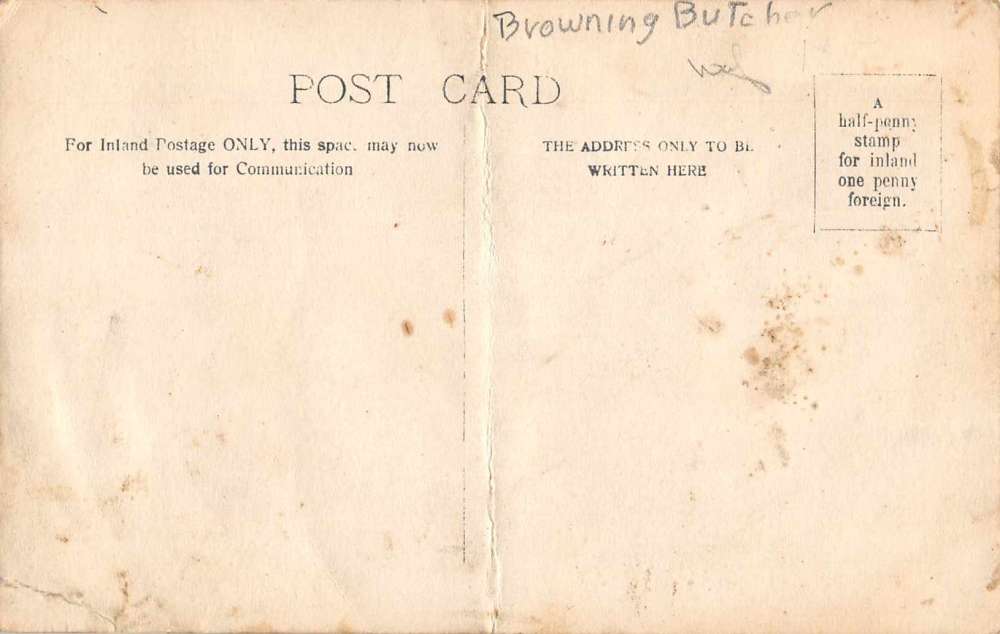 Browning Butcher
POST CARD
For Inland Postage ONLY, this space may now
be used for Communication
THE ADDRESS ONLY TO BE
WRITTEN HERE
A
half-penny
stamp
for inland
one penny
foreign.